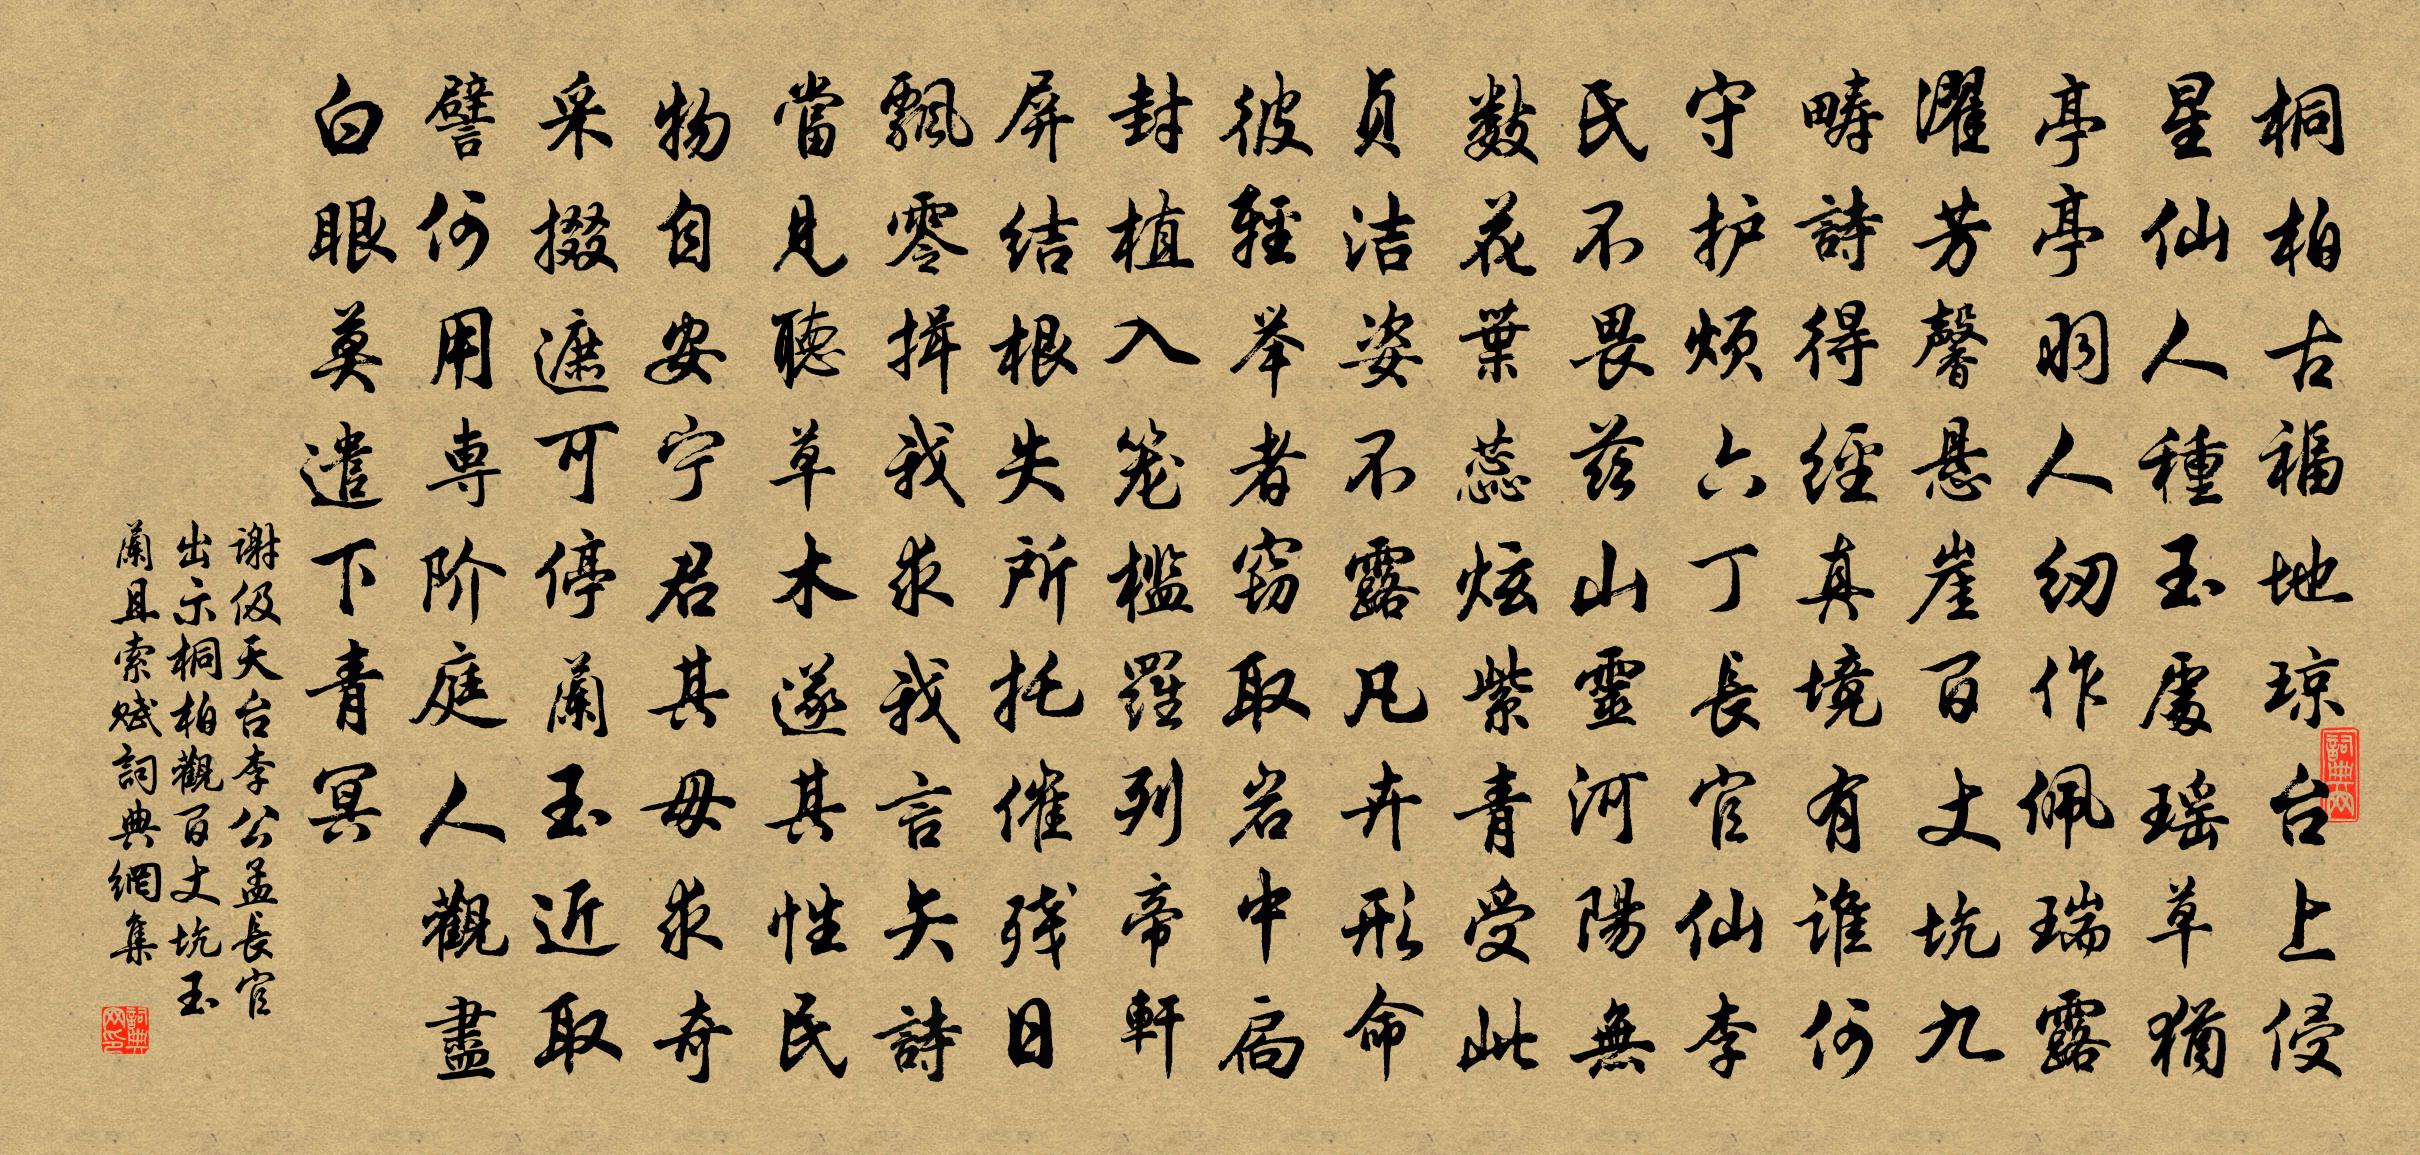 桐柏古福地琼台上侵
星仙人種玉處瑶草猶
亭亭羽人纫作佩瑞露
濯芳馨悬崖百丈坑九
畴詩得經真境有谁何
守护烦六丁長官仙李
民不畏兹山靈河陽無
数花葉蕊炫紫青受此
貞洁姿不露凡卉形命
彼輕举者窃取岩中扃
封植入笼槛羅列帝軒
屏结根失所托催残日
飘零揖我求我言矢詩
當見聽草木遂其性民
物自安宁君其毋求奇
采掇遮可停蘭玉近取
譬何用専阶庭人觀盡
白眼莫遣下青冥
谢伋天台李公孟長官
出示桐柏觀百丈坑玉
蘭且索赋詞典網集
詞典网
詞典网印